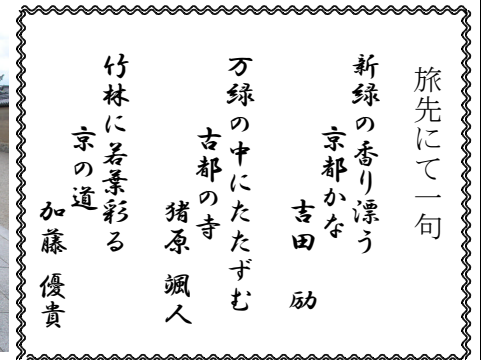 旅先にて一句
新緑の香り漂う
京都かな
吉田 励
万緑の中にたたずむ
古都の寺
猪原 颯人
竹林に若葉彩る
京の道
加藤 優貴